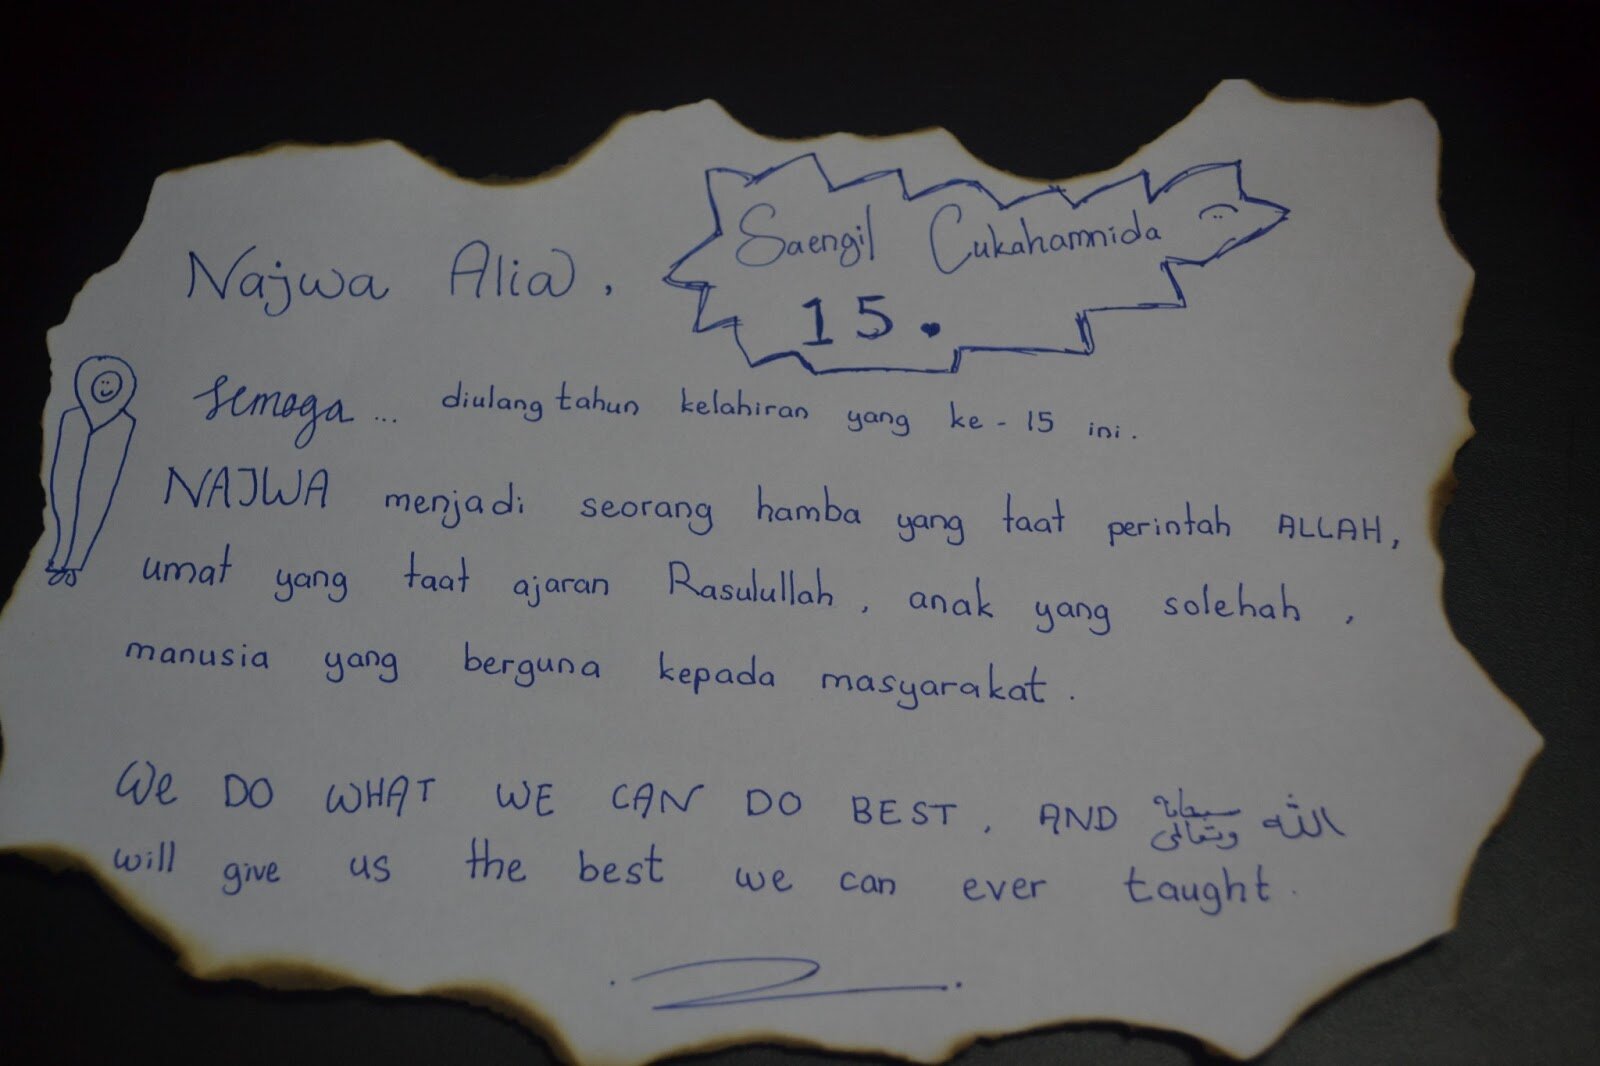 Najwa Alia,
Saengil Cukahamnida
15.
Semoga... diulang tahun kelahiran yang ke-15 ini.
NAJWA menjadi seorang hamba yang taat perintah ALLAH,
umat yang taat ajaran Rasulullah, anak yang solehah,
manusia yang berguna kepada masyarakat.
We DO WHAT WE CAN DO BEST, AND الله سبحانه وتعالى
will give us the best we can ever taught.